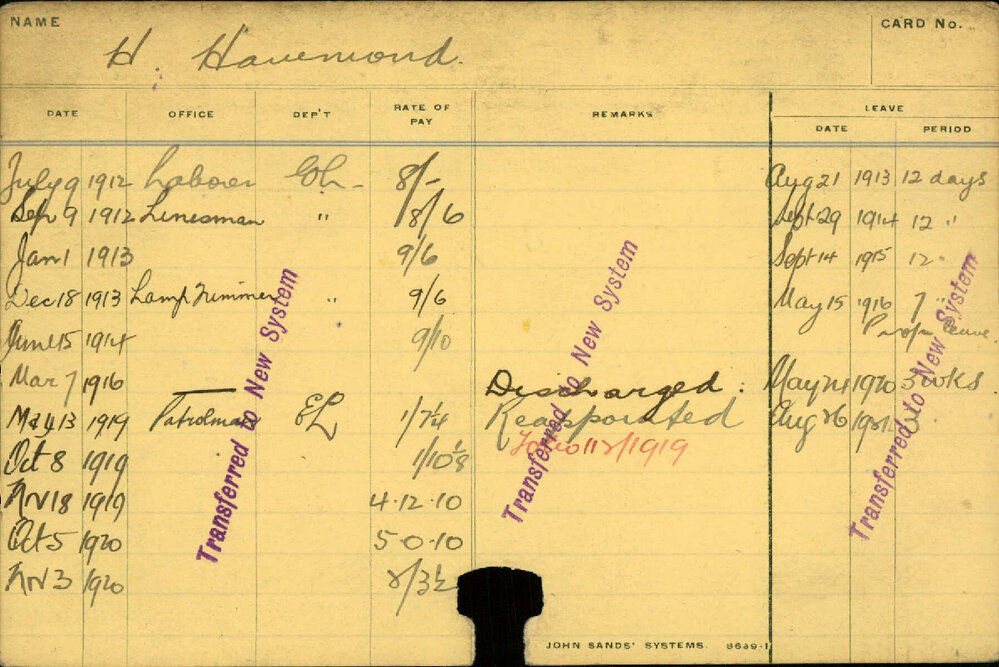 NAME CARD No.
H. Havemond.
DATE OFFICE DEP'T RATE OF PAY REMARKS LEAVE
DATE PERIOD
July 9 1912 Laborer 8/- Aug 21 1913 12 days
Sep 9 1912 Linesman " 8/6 Sept 29 1914 12 "
Jan 1 1913 9/6 Sept 14 1915 12 "
Dec 18 1913 Lamp Trimmer " 9/6 May 15 1916 7 "
June 15 1914 9/10 leave.
Mar 7 1916 — Discharged. May 24 1920 3 wks
May 13 1919 Patrolman EL 1/7¼ Reappointed Aug 26
Oct 8 1919 1/10⅛ 112/1919
Nov 18 1919 4.12.10
Oct 5 1920 5.0.10
Nov 3 1920 2/3½
Transferred to New System
Transferred to New System
Transferred to New System
JOHN SANDS' SYSTEMS. 8639-1